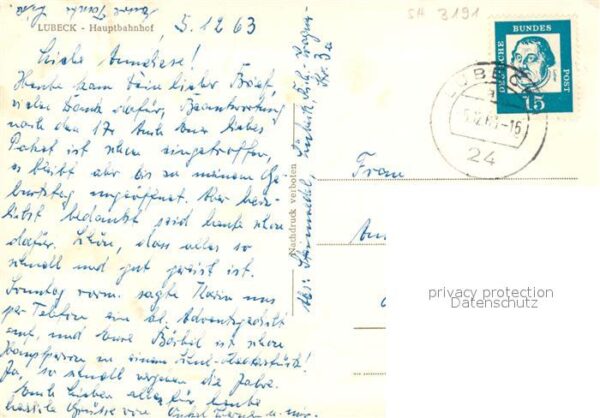 5.12.63
SH 3191
LÜBECK - Hauptbahnhof
Liebe Anneliese!
Heute kam Dein lieber Brief,
vielen Dank dafür, Beantwortung
nach dem 17. Auch Euer liebes
Paket ist schon eingetroffen,
es bleibt aber bis zu meinem Ge-
burtstag ungeöffnet. Aber herz-
lichst bedankt seid heute schon
dafür. Schön, dass alles so
schnell und gut gereist ist.
Sonntag vorm. sagte Karin uns
per Telefon ein kl. Adventsgedicht
auf, und Eure Bärbel ist schon
in einem
Ja, so schnell vergehen die Jahre.
Euch Lieben alles für heute
herzliche Grüsse von Onkel u.
Nachdruck verboten
Abs.: Lübeck,
Str. 3a
Frau
DEUTSCHE BUNDES POST
15
LÜBECK
5.12.63-16
24
privacy protection
Datenschutz